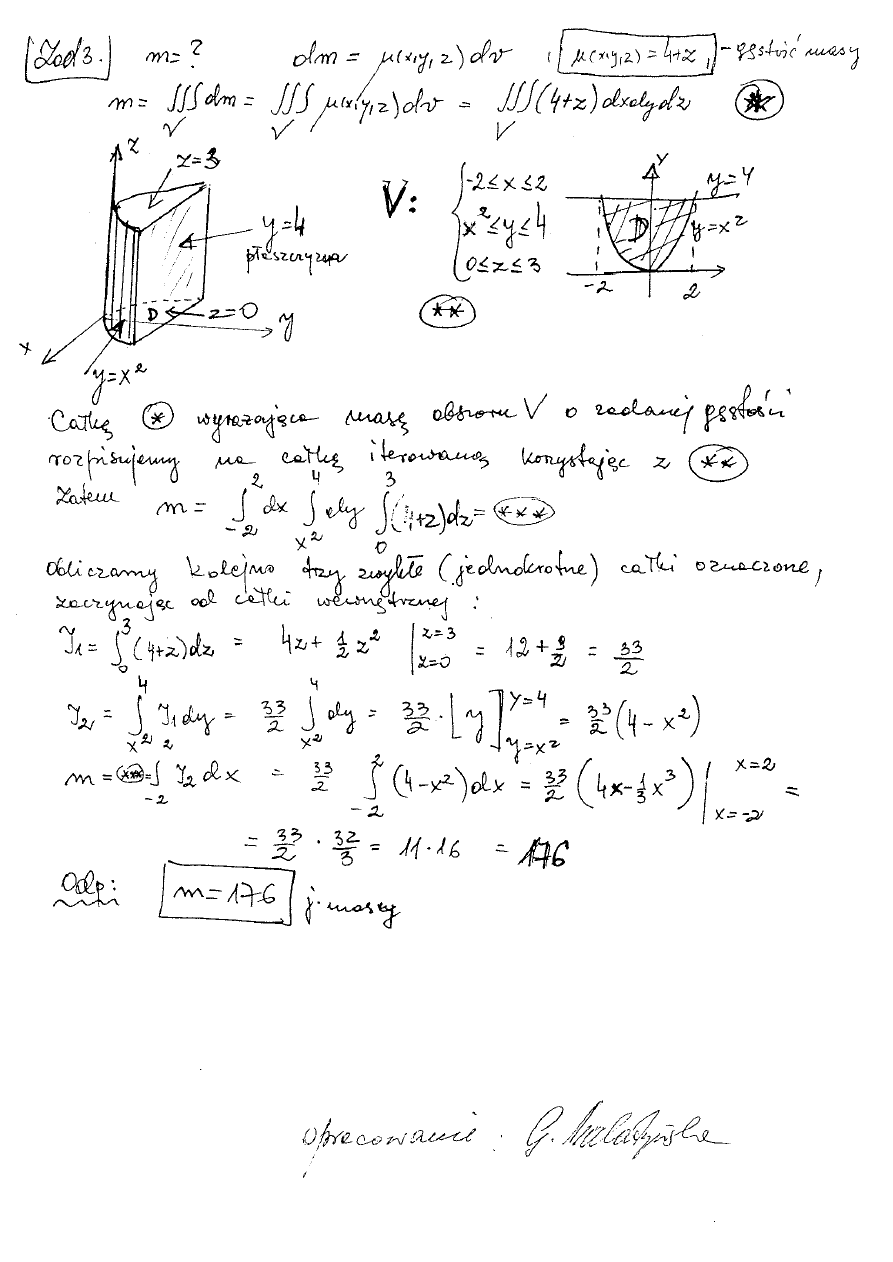 Zad 3. m=? dm = μ(x,y,z)dv , μ(x,y,z) = 4+z, - gęstość masy
m = ∭_V dm = ∭_V μ(x,y,z)dv = ∭_V (4+z)dxdydz (*)
z
z=3
y=4
płaszczyzna
D
z=0
y
x
y=x²
V:
-2≤x≤2
x²≤y≤4
0≤z≤3
(**)
y
y=4
D
y=x²
-2
2
Całkę (*) wyrażającą masę obszaru V o zadanej gęstości
rozpisujemy na całkę iterowaną korzystając z (**)
Zatem m = ∫_{-2}^{2} dx ∫_{x²}^{4} dy ∫_{0}^{3} (4+z)dz = (***)
Obliczamy kolejno trzy zwykłe (jednokrotne) całki oznaczone,
zaczynając od całki wewnętrznej :
J₁ = ∫_{0}^{3} (4+z)dz = 4z + 1/2 z² |_{z=0}^{z=3} = 12 + 9/2 = 33/2
J₂ = ∫_{x²}^{4} J₁ dy = 33/2 ∫_{x²}^{4} dy = 33/2 · [y]_{y=x²}^{y=4} = 33/2 (4 - x²)
m = (***) = ∫_{-2}^{2} J₂ dx = 33/2 ∫_{-2}^{2} (4-x²)dx = 33/2 (4x - 1/3 x³) |_{x=-2}^{x=2} =
= 33/2 · 32/3 = 11·16 = 176
Odp: m=176 j. masy
opracowanie : G.